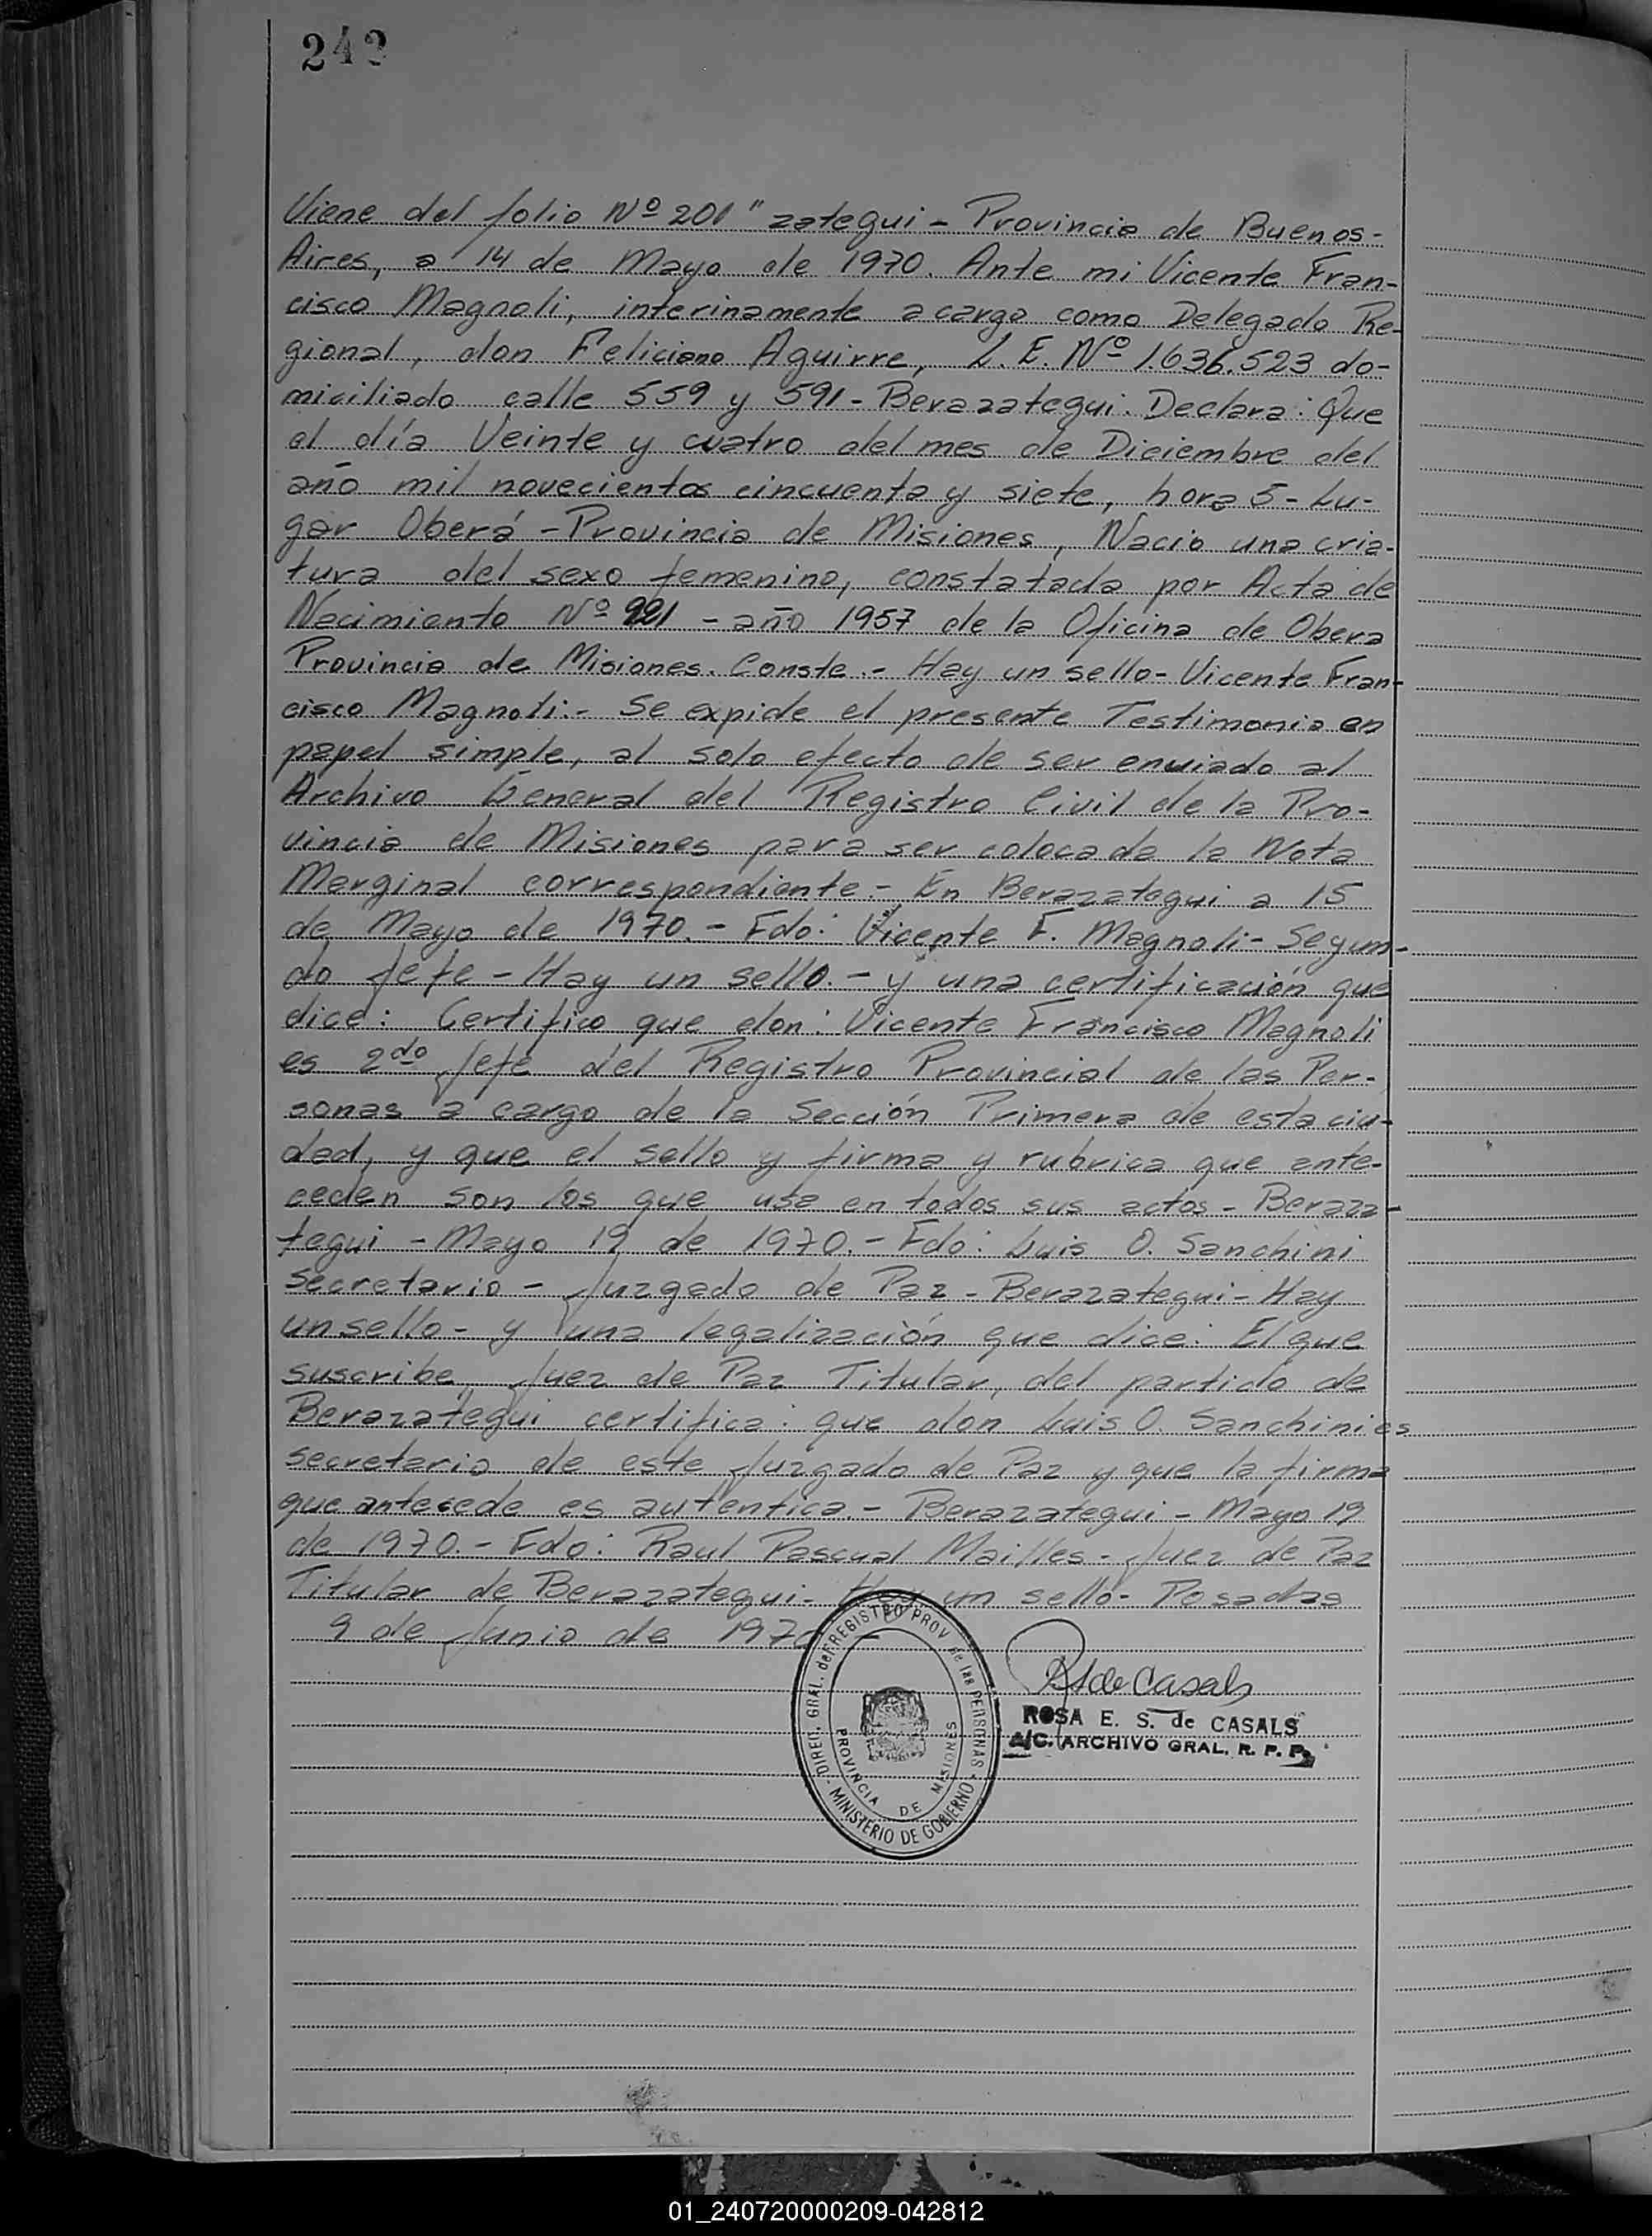 242
Viene del folio Nº 201" zategui - Provincia de Buenos-
Aires, a 14 de Mayo de 1970. Ante mi Vicente Fran-
cisco Magnoli, interinamente a cargo como Delegado Re-
gional, don Feliciano Aguirre, L.E. Nº 1.636.523 do-
miciliado calle 559 y 591 - Berazategui. Declara: Que
el día Veinte y cuatro del mes de Diciembre del
año mil novecientos cincuenta y siete, hora 5 - Lu-
gar Oberá - Provincia de Misiones, Nacio una cria-
tura del sexo femenino, constatada por Acta de
Nacimiento Nº 221 - año 1957 de la Oficina de Obera
Provincia de Misiones. Conste. - Hay un sello - Vicente Fran-
cisco Magnoli. - Se expide el presente Testimonio en
papel simple, al solo efecto de ser enviado al
Archivo General del Registro Civil de la Pro-
vincia de Misiones para ser colocada la Nota
Marginal correspondiente. - En Berazategui a 15
de Mayo de 1970. - Fdo: Vicente F. Magnoli - Segun-
do Jefe - Hay un sello. - y una certificación que
dice: Certifico que don: Vicente Francisco Magnoli
es 2do Jefe del Registro Provincial de las Per-
sonas a cargo de la Sección Primera de esta ciu-
dad, y que el sello y firma y rubrica que ante-
ceden son los que usa en todos sus actos - Beraza-
tegui - Mayo 19 de 1970. - Fdo: Luis O. Sanchini
secretario - Juzgado de Paz - Berazategui - Hay
un sello - y una legalización que dice: El que
suscribe, Juez de Paz Titular, del partido de
Berazategui certifica: que don Luis O. Sanchini es
secretario de este Juzgado de Paz y que la firma
que antecede es autentica. - Berazategui - Mayo 19
de 1970. - Fdo: Raul Pascual Mailles - Juez de Paz
Titular de Berazategui - Hay un sello - Posadas
9 de Junio de 1970 -
DIREC. GRAL. del REGISTRO PROV de las PERSONAS
PROVINCIA DE MISIONES
MINISTERIO DE GOBIERNO
RSde Casals
ROSA E. S. de CASALS
A/C. ARCHIVO GRAL. R. P. P.
01_240720000209-042812